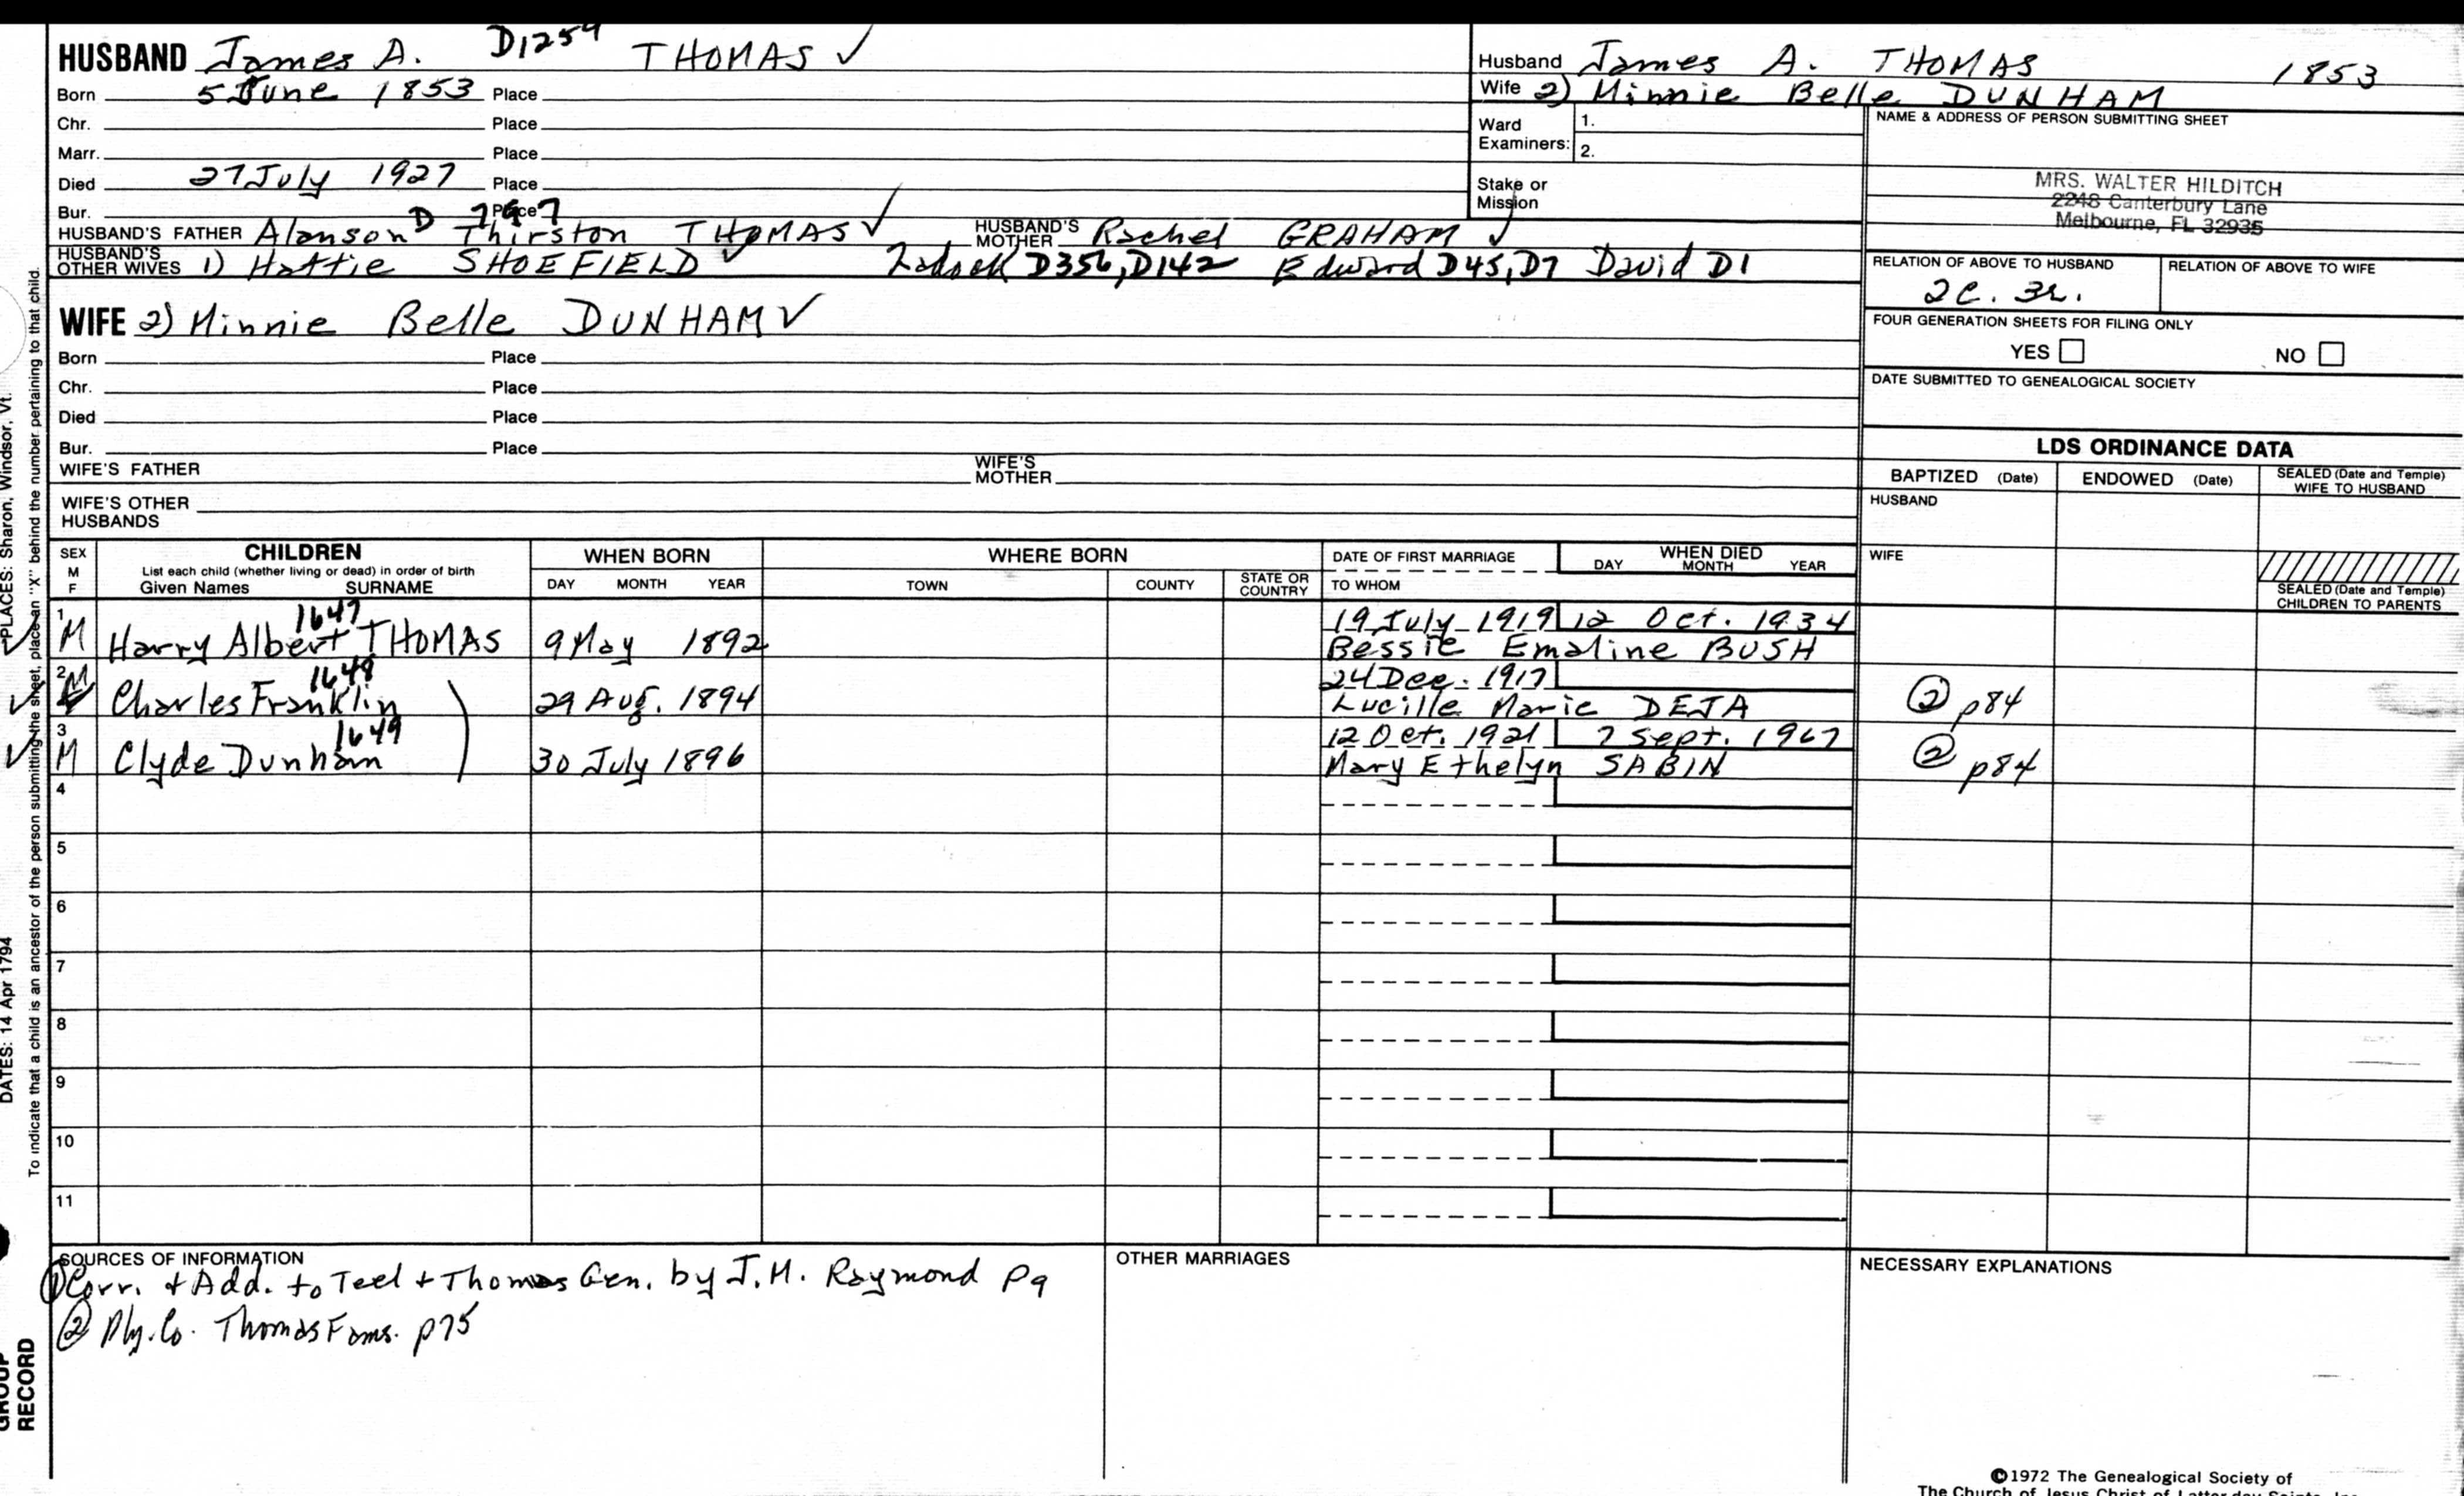 HUSBAND James A. D1259 THOMAS ✓
Born 5 June 1853 Place
Chr. Place
Marr. Place
Died 27 July 1927 Place
Bur. Place
HUSBAND'S FATHER Alanson D 797 Thirston THOMAS ✓ HUSBAND'S MOTHER Rachel GRAHAM ✓
HUSBAND'S OTHER WIVES 1) Hattie SHOEFIELD ✓ Zadock D356, D142 Edward D45, D7 David D1
WIFE 2) Minnie Belle DUNHAM ✓
Born Place
Chr. Place
Died Place
Bur. Place
WIFE'S FATHER WIFE'S MOTHER
WIFE'S OTHER HUSBANDS
Husband James A. THOMAS 1853
Wife 2) Minnie Belle DUNHAM
Ward Examiners: 1.
2.
Stake or Mission
NAME & ADDRESS OF PERSON SUBMITTING SHEET
MRS. WALTER HILDITCH
2248 Canterbury Lane
Melbourne, FL 32935
RELATION OF ABOVE TO HUSBAND RELATION OF ABOVE TO WIFE
2C. 3R.
FOUR GENERATION SHEETS FOR FILING ONLY
YES NO
DATE SUBMITTED TO GENEALOGICAL SOCIETY
LDS ORDINANCE DATA
BAPTIZED (Date) ENDOWED (Date) SEALED (Date and Temple) WIFE TO HUSBAND
HUSBAND
WIFE
SEALED (Date and Temple) CHILDREN TO PARENTS
SEX M F CHILDREN WHEN BORN WHERE BORN DATE OF FIRST MARRIAGE WHEN DIED
List each child (whether living or dead) in order of birth
Given Names SURNAME DAY MONTH YEAR TOWN COUNTY STATE OR COUNTRY TO WHOM DAY MONTH YEAR
1 1647 19 July 1919 12 Oct. 1934
M Harry Albert THOMAS 9 May 1892 Bessie Emaline BUSH
2 1648 24 Dec. 1917
M Charles Franklin 29 Aug. 1894 Lucille Marie DEJA ② p84
3 1649 12 Oct. 1921 7 Sept. 1967
M Clyde Dunham 30 July 1896 Mary Ethelyn SABIN ② p84
4
5
6
7
8
9
10
11
SOURCES OF INFORMATION OTHER MARRIAGES NECESSARY EXPLANATIONS
① Corr. + Add. to Teel + Thomas Gen. by J.M. Raymond p9
② Ply. Co. Thomas Fams. p75
PLACES: Sharon, Windsor, Vt.
DATES: 14 Apr 1794
To indicate that a child is an ancestor of the person submitting the sheet, place an "X" behind the number pertaining to that child.
GROUP RECORD
©1972 The Genealogical Society of
The Church of Jesus Christ of Latter-day Saints, Inc.